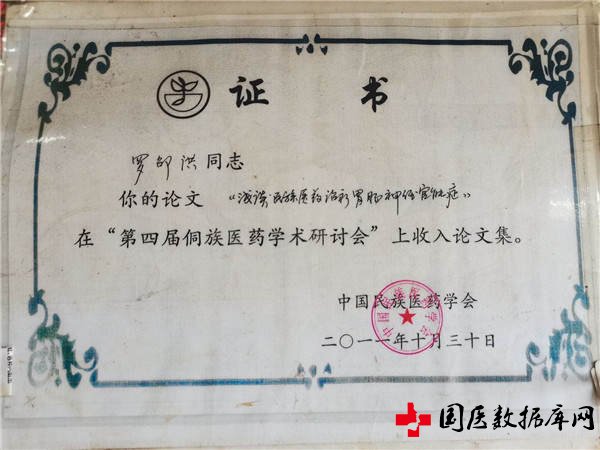 证 书
罗邵洪同志
你的论文 "浅谈民族医药治疗胃肠神经官能症"
在"第四届侗族医药学术研讨会"上收入论文集。
中国民族医药学会
中国民族医药学会
二〇一一年十月三十日
国医数据库网